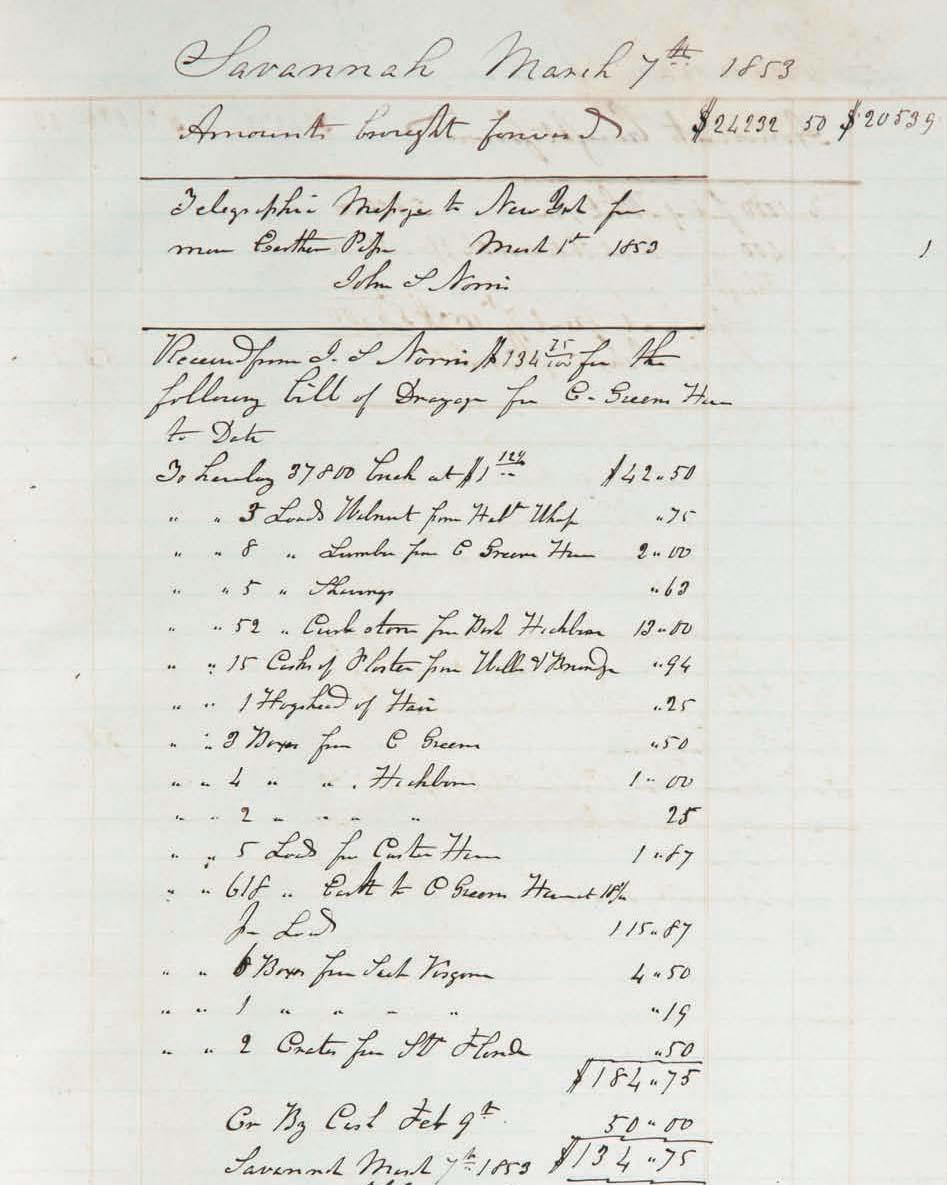 Savannah March 7th 1853
Amounts brought forward $24232 50 $20539
Telegraphic Message to New York for
more Earthen Pipe March 1st 1853 1
John S Norris
Received from J. S Norris $134 75/100 for the
following bill of Drayage for C. Greens House
to Date
To hauling 37800 brick at $1 12½ $42"50
" " 3 Loads Walnut from Habt Wharf "75
" " 8 " Lumber from C Greens House 2"00
" " 5 " Shavings "63
" " 52 " Curb stone from Bark Hichborn 13"00
" " 15 Casks of Plaster from Wells & "94
" " 1 Hogshead of Hair "25
" " 3 Boxes from C Greens "50
" " 4 " " Hichborn 1"00
" " 2 " " " " 25
" " 5 Loads from Custom House 1"87
" " 618 " Earth to C Greens House at 18¾
pr Load 115"87
" " 6 Boxes from Virginia 4"50
" " 1 " " " " "19
" " 2 Crates from Str Florida "50
$184"75
Cr By Cash Feb 9th 50"00
Savannah March 7th 1853 $134"75